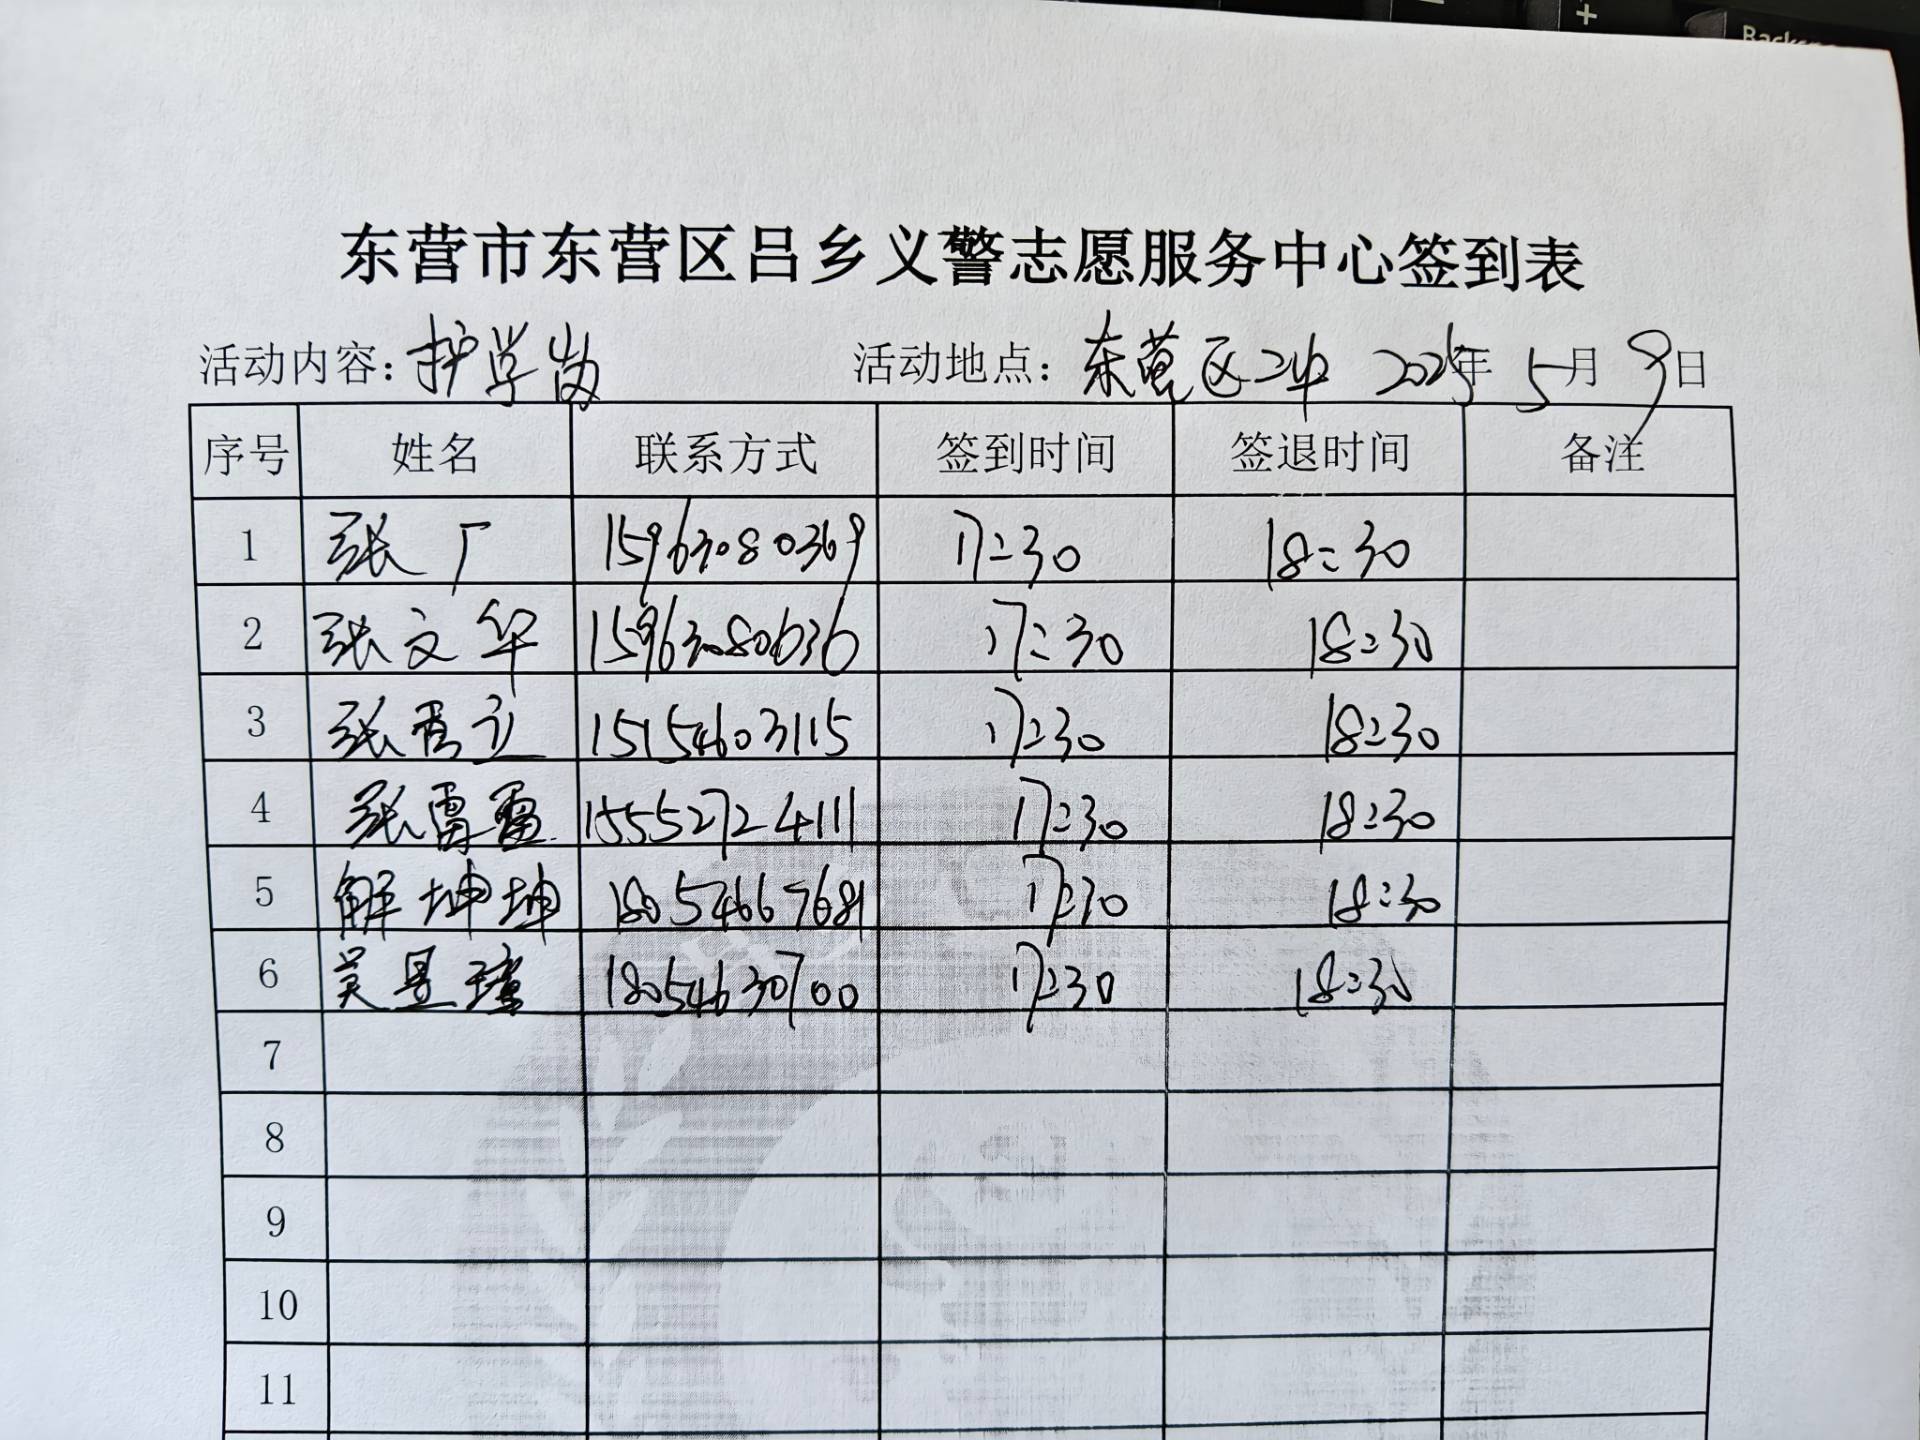 Backsp
东营市东营区吕乡义警志愿服务中心签到表
活动内容:护学岗 活动地点:东营区二中 2025年 5月 9日
序号 姓名 联系方式 签到时间 签退时间 备注
1 张广 15963080369 17:30 18:30
2 张文华 15963080636 17:30 18:30
3 张秀立 15154603115 17:30 18:30
4 张雷雷 15552724111 17:30 18:30
5 解坤坤 18054667681 17:30 18:30
6 吴昱瑾 18054630700 17:30 18:30
7
8
9
10
11